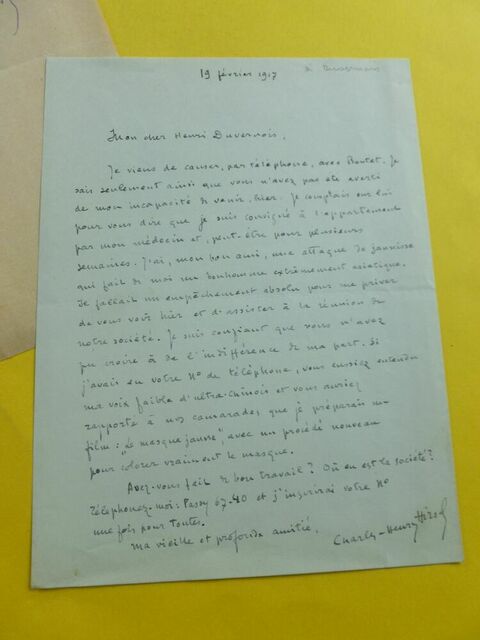 19 février 1917
à Duvernois
Mon cher Henri Duvernois,
Je viens de causer, par téléphone, avec Boutet. Je
sais seulement ainsi que vous n'avez pas été averti
de mon incapacité de venir, hier. Je comptais sur lui
pour vous dire que je suis consigné à l'appartement
par mon médecin et, peut-être pour plusieurs
semaines. J'ai, mon bon ami, une attaque de jaunisse
qui fait de moi un bonhomme extrêmement asiatique.
Il fallait un empêchement absolu pour me priver
de vous voir hier et d'assister à la réunion de
notre société. Je suis confiant que vous n'avez
pu croire à de l'indifférence de ma part. Si
j'avais eu votre No de téléphone, vous eussiez entendu
ma voix faible d'ultra-chinois et vous auriez
rapporté à nos camarades que je préparais un
film : "Le masque jaune" avec un procédé nouveau
pour colorer vraiment le masque.
Avez-vous fait de bon travail ? Où en est la société ?
Téléphonez-moi : Passy 67-40 et j'inscrirai votre No
une fois pour toutes.
Ma vieille et profonde amitié.
Charles-Henry Hirsch